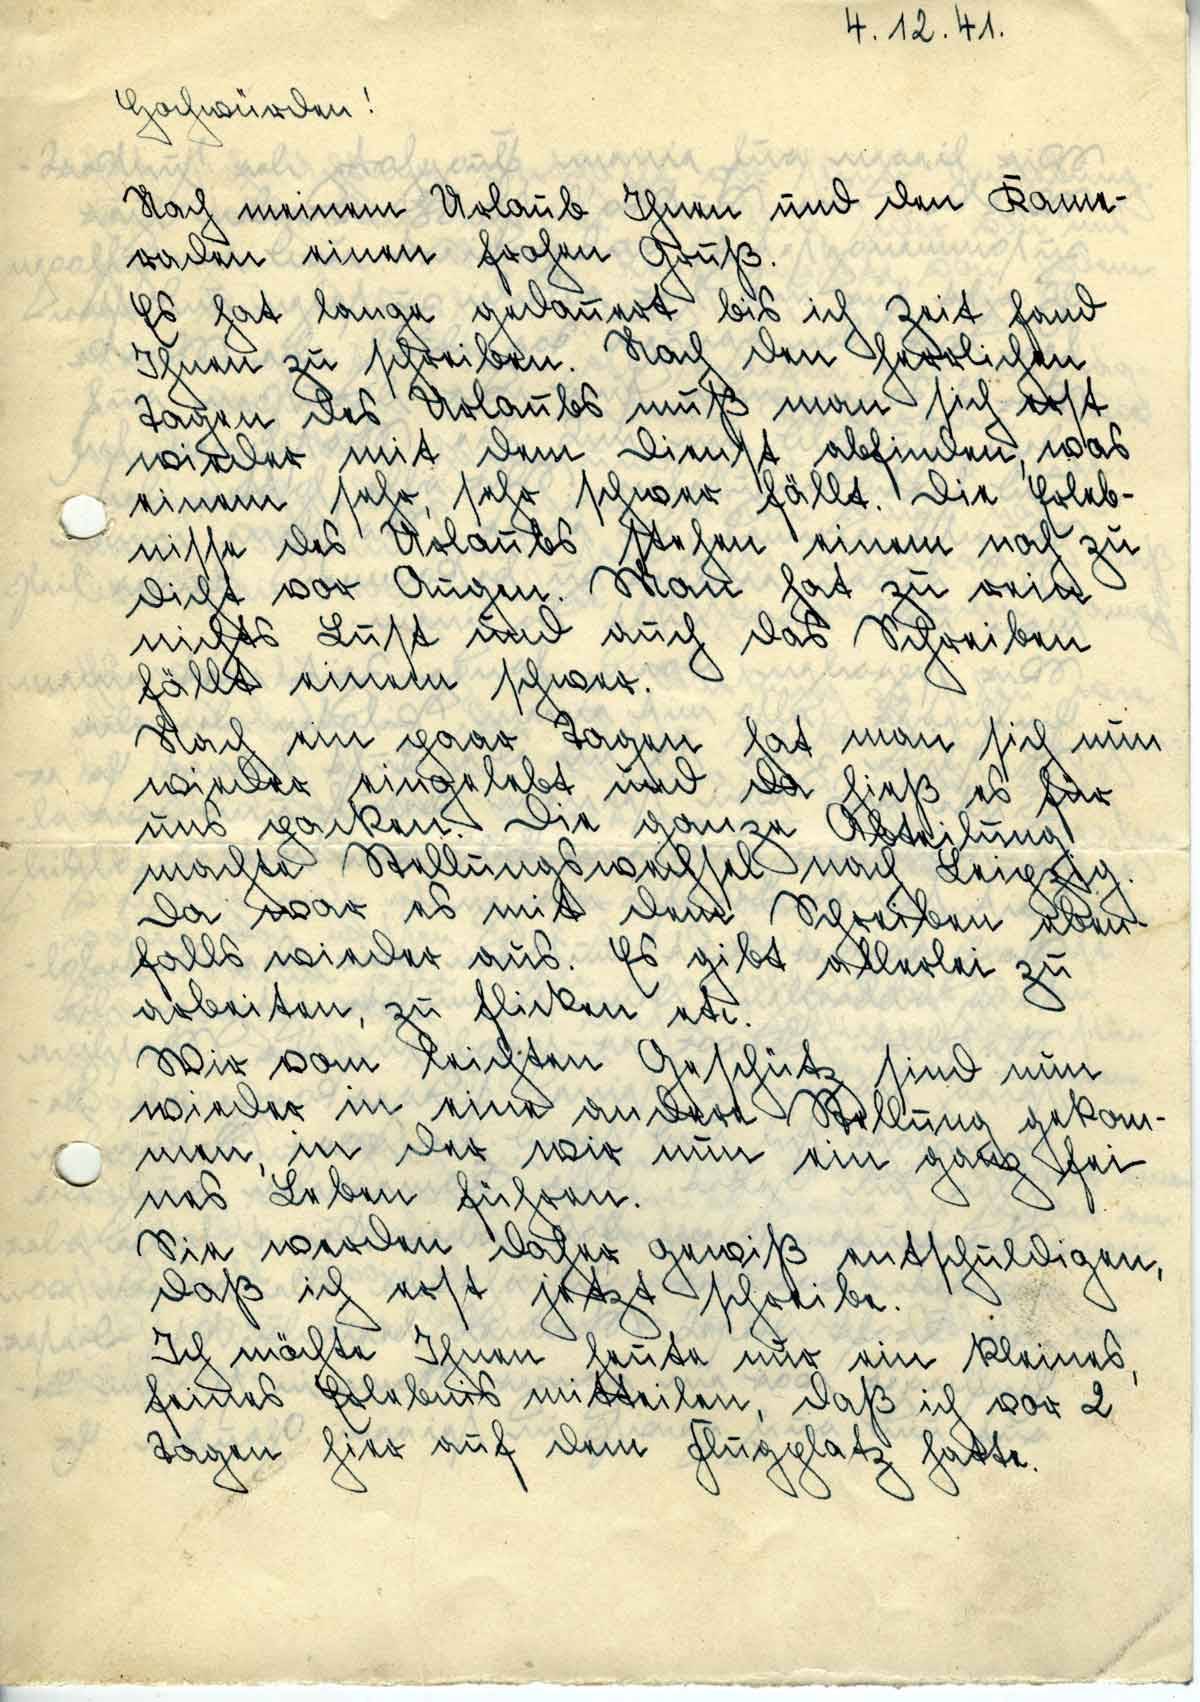 4.12.41.
Hochwürden!
Nach meinem Urlaub Ihnen und den Kame-
raden einen frohen Gruß.
Es hat lange gedauert bis ich Zeit fand
Ihnen zu schreiben. Nach den herrlichen
Tagen des Urlaubs muß man sich erst
wieder mit dem Dienst abfinden, was
einem sehr, sehr schwer fällt. Die Erleb-
nisse des Urlaubs stehen einem noch zu
dicht vor Augen. Man hat zu rein
nichts Lust und auch das Schreiben
fällt einem schwer.
Nach ein paar Tagen hat man sich nun
wieder eingelebt und da hieß es für
uns packen. Die ganze Abteilung
machte Stellungswechsel nach Leipzig.
Da war es mit dem Schreiben eben-
falls wieder aus. Es gibt allerlei zu
arbeiten, zu flicken etc.
Wir vom leichten Geschütz sind nun
wieder in eine andere Stellung gekom-
men, in der wir nun ein ganz fei
nes Leben führen.
Sie werden daher gewiß entschuldigen,
daß ich erst jetzt schreibe.
Ich möchte Ihnen heute nur ein kleines,
feines Erlebnis mitteilen, daß ich vor 2
Tagen hier auf dem Flugplatz hatte.